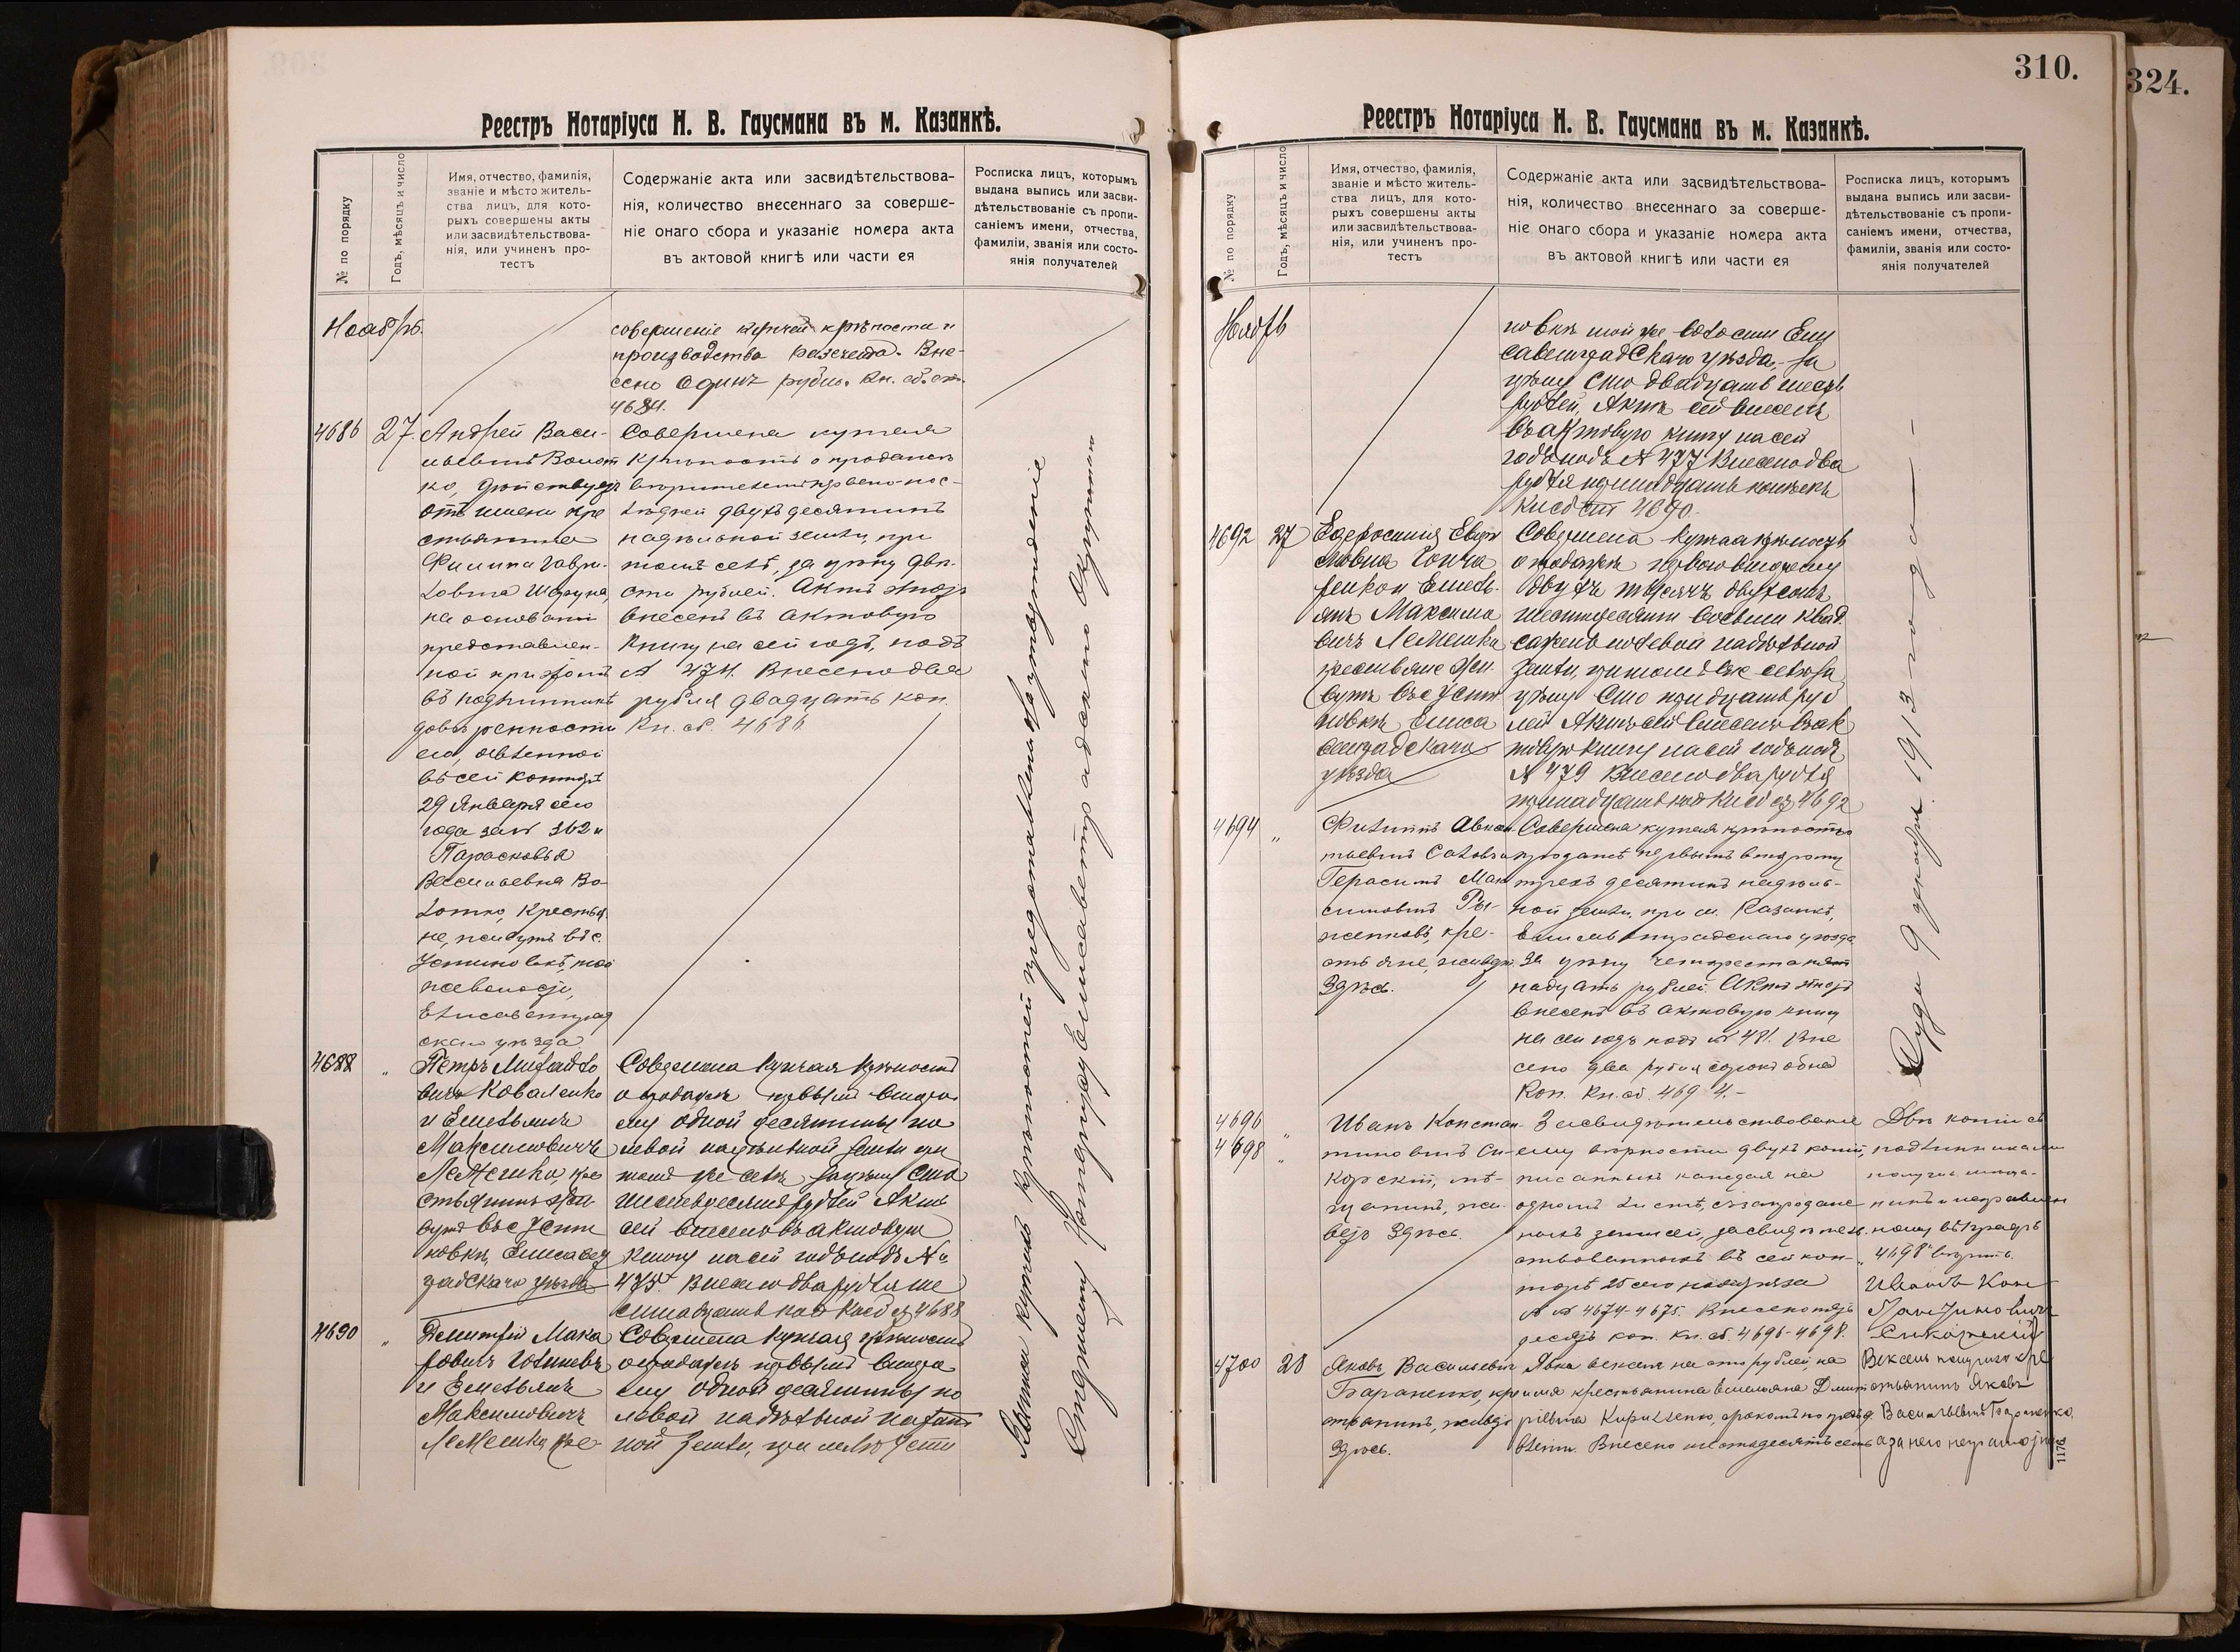 310.
324.
Реестръ Нотаріуса Н. В. Гаусмана въ м. Казанкѣ.
№ по порядку
Годъ, мѣсяцъ и число
Имя, отчество, фамилія,
званіе и мѣсто житель-
ства лицъ, для кото-
рыхъ совершены акты
или засвидѣтельствова-
нія, или учиненъ про-
тестъ
Содержаніе акта или засвидѣтельствова-
нія, количество внесеннаго за соверше-
ніе онаго сбора и указаніе номера акта
въ актовой книгѣ или части ея
Росписка лицъ, которымъ
выдана выпись или засви-
дѣтельствованіе съ пропи-
саніемъ имени, отчества,
фамиліи, званія или состо-
янія получателей
Ноябрь.
совершеніе купчей крѣпости и
производства разсчета. Вне-
сено Одинъ рубль. Кн. сб. ст.
4684.
4686
27.
Андрей Васи-
льевичъ Волот
ко, дѣйствуетъ
отъ имени кре
стьянина
Филиппа Гаври-
ловича
на основаніи
представлен-
ной при этомъ
въ подлинникѣ
довѣренности
его, явленной
въ сей конторѣ
29 Января сего
года за № 362 и
Парасковья
Васильевна Во-
лотко, Крестья-
не, живутъ въ с.
Устиновкѣ, той
же волости,
Елисаветград
скаго уѣзда.
Совершена купчая
Крѣпость о продажѣ
вторител первено пос-
лѣдней двухъ десятинъ
надѣльной земли, при
томъ селѣ, за цѣну двѣ-
сти рублей. Актъ этотъ
внесенъ въ актовую
книгу на сей годъ, подъ
№ 474. Внесено два
рубля двадцать коп.
Кн. сб. 4686
4688
„
Петръ Михайло
вичъ Коваленко
и Емельянъ
Максимовичъ
Лемешко, кре
стьянинъ, жи-
вутъ въ с Усти
новкѣ, Елисавет
градскаго уѣзда
Совершена Купчая Крѣпость
о продажѣ первымъ второ
му одной десятины по
левой надѣльной земли при
томъ же селѣ за цѣну Сто
шестьдесятъ рублей Актъ
сей внесенъ въ актовую
Книгу на сей годъ подъ №
475. Внесено два рубля ше
стнадцать коп Кн сб ст 4688
4690
„
Дмитрій Мака
ровичъ
и Емельянъ
Максимовичъ
Лемешко кре-
Совершена Купчая крѣпость
о продажѣ первымъ второ
му Одной десятины по
левой надѣльной
ной земли, при селѣ Усти
Реестръ Нотаріуса Н. В. Гаусмана въ м. Казанкѣ.
№ по порядку
Годъ, мѣсяцъ и число
Имя, отчество, фамилія,
званіе и мѣсто житель-
ства лицъ, для кото-
рыхъ совершены акты
или засвидѣтельствова-
нія, или учиненъ про-
тестъ
Содержаніе акта или засвидѣтельствова-
нія, количество внесеннаго за соверше-
ніе онаго сбора и указаніе номера акта
въ актовой книгѣ или части ея
Росписка лицъ, которымъ
выдана выпись или засви-
дѣтельствованіе съ пропи-
саніемъ имени, отчества,
фамиліи, званія или состо-
янія получателей
Ноябрь
новкѣ той же волости Ели
саветградскаго уѣзда, за
цѣну Сто двадцать шесть
рублей, Актъ сей внесенъ
въ актовую книгу на сей
годъ подъ № 477 Внесено два
рубля тринадцать копѣекъ
Кн сб ст 4690.
4692
27
Ефросинія
Емель-
янъ Максимо
вичъ Лемешко
крестьяне жи-
вутъ въ с Усти
новкѣ Елиса
ветградскаго
уѣзда
Совершена Купчая крѣпость
о продажѣ первою второму
двухъ тысячъ двухсотъ
шестидесяти восьми квад.
сажень полевой надѣльной
земли, при томъ же селѣ за
цѣну Сто тридцать руб
лей Актъ сей внесенъ въ ак
товую книгу на сей годъ подъ
№ 479 Внесено два рубля
тринадцать коп Кн сб ст 4692
4694
„
Филиппъ
Герасимъ Мак
симовичъ
кре-
стьяне, живутъ
Здѣсь.
Совершена купчая крѣпость
продажѣ первымъ второму
трехъ десятинъ надѣль-
ной земли, при м. Казанкѣ,
Елисаветградскаго уѣзда
за цѣну четыреста пят
надцать рублей. Актъ этотъ
внесенъ въ актовую книгу
на сей годъ подъ № 481. Вне
сено два рубля сорокъ одна
Коп. Кн. сб. 4694.-
4696
4698
„
„
Иванъ Констан-
тиновичъ Си-
корскій, мѣ-
щанинъ, жи-
ветъ Здѣсь.
Засвидѣтельствованіе
ему вѣрности двухъ копій,
писанныхъ каждая на
одномъ листѣ, съ запродаж-
ныхъ записей, засвидѣтель-
ствованныхъ въ сей кон-
торѣ 25 сего ноября за
№№ 4674-4675. Внесено
десять коп. Кн. сб. 4696-4698.
Двѣ копіи съ
подлинниками
получилъ
4698" вѣрить.
Иванъ Кон-
стантиновичъ
Сикорскій
4700
28
Яковъ Васильевичъ
Бараненко, кре
стьянинъ, живетъ
Здѣсь.
Явка векселя на сто рублей на
имя крестьянина Емельяна Дмит
ріевича Кириленко, срокомъ по предъя
вленіи. Внесено шестьдесятъ семь
Вексель получилъ кре
стьянинъ Яковъ
Васильевичъ Бараненко,
а за него неграмотн
1176
Выписи купчихъ крѣпостей представлены на утвержденіе
Старшему Нотаріусу Елисаветградскаго Окружнаго
Суда 9 декабря 1913 года